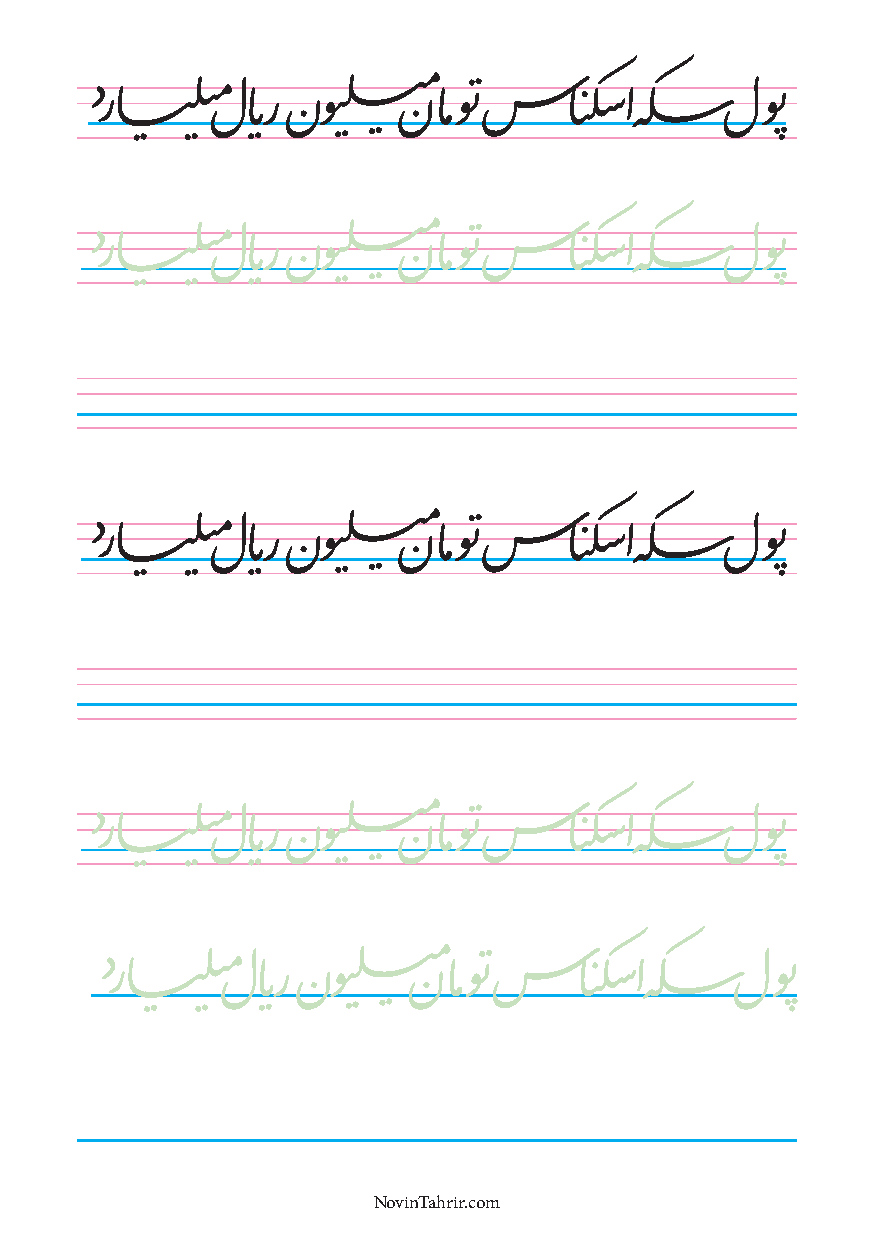 پول سکه اسکناس تومان میلیون ریال میلیارد
پول سکه اسکناس تومان میلیون ریال میلیارد
پول سکه اسکناس تومان میلیون ریال میلیارد
پول سکه اسکناس تومان میلیون ریال میلیارد
پول سکه اسکناس تومان میلیون ریال میلیارد
NovinTahrir.com